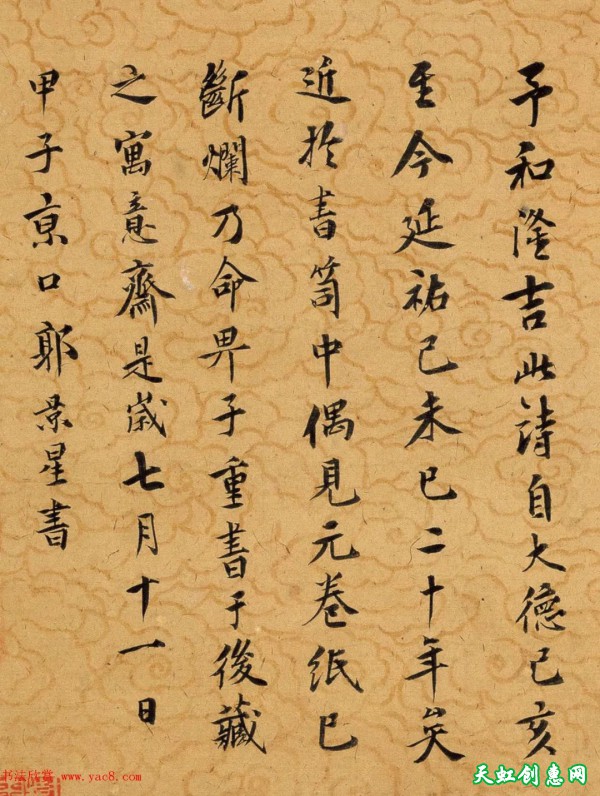 予和隆吉此詩自大德己亥
至今延祐己未已二十年矣
近於書笥中偶見元卷紙已
斷爛乃命畀子重書于後藏
之寓意齋是歲七月十一日
甲子京口郭景星書
书法欣赏 www.yac8.com
天虹创惠网